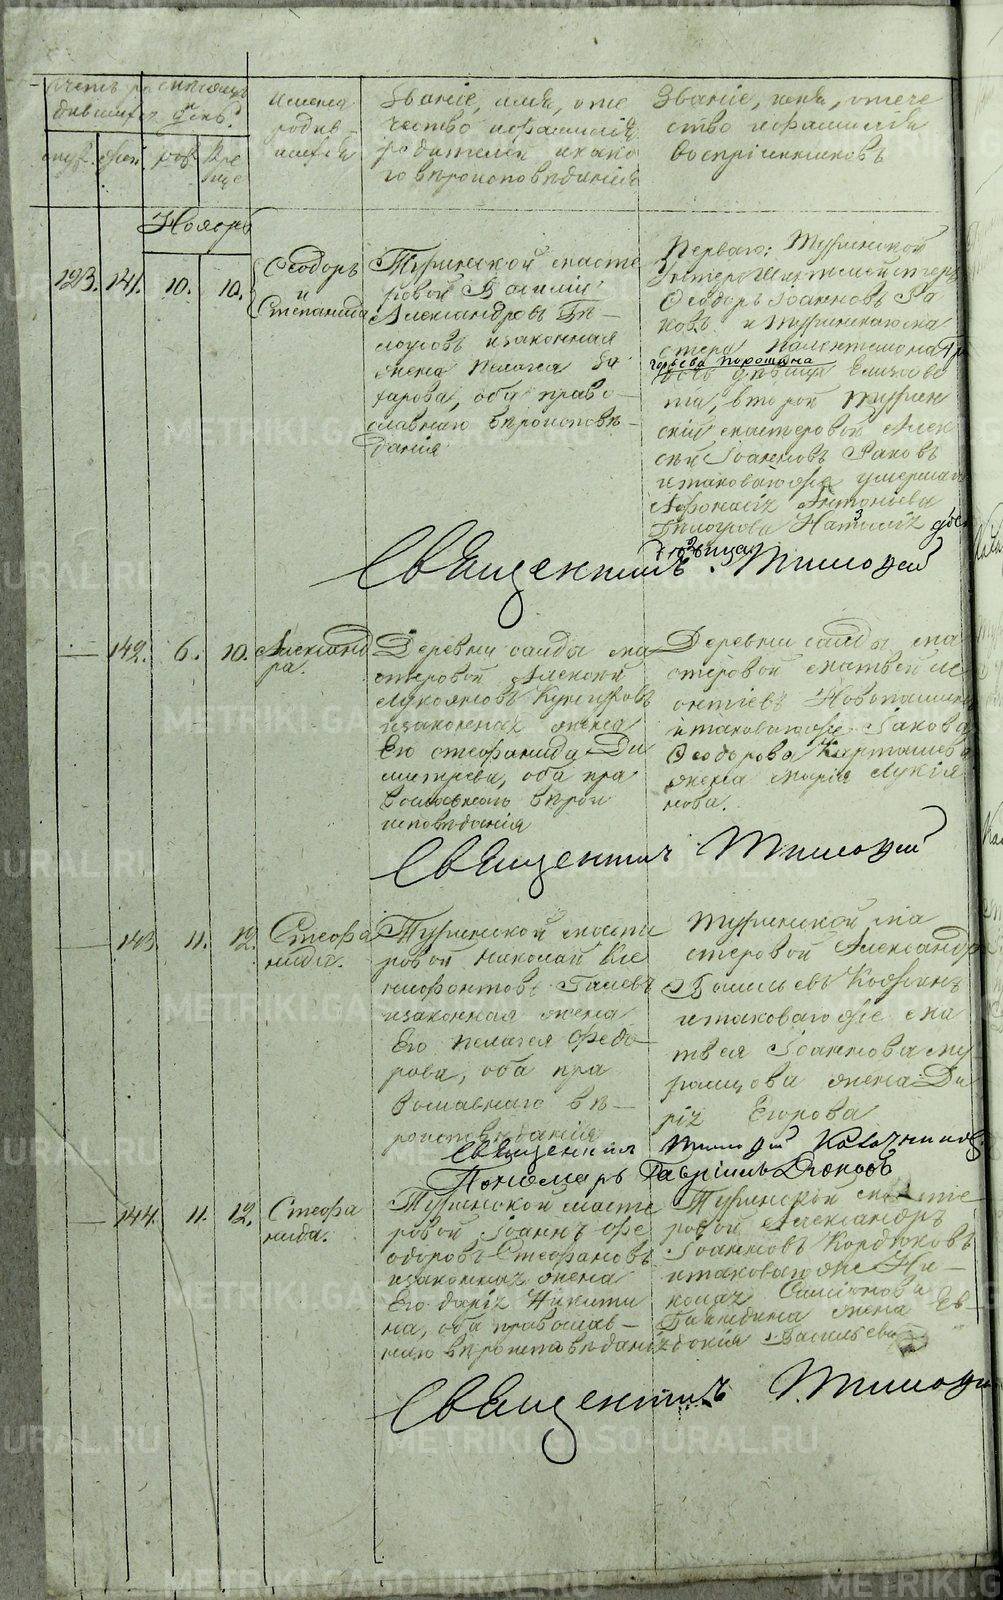 Счетъ родившихся
мѣсяцъ день
муж. жен. рож. кре
ще
имена
родив-
шихся
Званіе, имя, оте
чество и фамилія
родителей и како
го вѣроисповѣданія
Званіе, имя, отече
ство и фамилія
воспріемниковъ
Ноябрь
123. 141. 10. 10.
Ѳеодоръ
и
Степанида
Туринской масте
ровой Василій
Александровъ Бѣ-
лоусовъ и законная
жена Пелагея За
харова, оба право-
славнаго вѣроисповѣ-
данія
Перваго: Туринской
Унтеръ
Ѳеодоръ Іоанновъ Ра
ковъ и Туринскаго ма
стера Пантелеимона Гри
горьева Порошина
дочь дѣвица Елисаве
та, второй Турин
скій мастеровой Алек
сѣй Іоанновъ Раковъ
и таковаго же умершаго
Аѳонасія Антоніева
Наталія
дѣвица
Священникъ Тимоѳей
— 142. 6. 10.
Александ
ра.
Деревни саиды ма
стеровой Алексѣй
Лукояновъ Кунгуровъ
и законная жена
Его Стефанида Ди
митрева, оба пра
вославнаго вѣрои
исповѣданія
Деревни саиды ма
стеровой Матвей Ле
онтіевъ Новопашинъ
и таковаго же Іакова
Ѳеодорова Карташева
жена Марія Лукія
нова.
Священникъ Тимоѳей
— 143. 11. 12.
Стефа
нида.
Туринской масте
ровой Николай Ксе
нофонтовъ Галевъ
и законная жена
Его Пелагея Федо
рова, оба пра
вославнаго вѣ-
роисповѣданія
Туринской ма
стеровой Александръ
Васильевъ
и таковаго же Ма
твея Іоаннова
жена Да
рія Егорова
Священникъ Тимоѳей Калачниковъ
Пономарь Гавріилъ Дюковъ
— 144. 11. 12.
Стефа
нида.
Туринской масте
ровой Іоаннъ Ѳе
одоровъ Стефановъ
и законная жена
Его Дарія Никити
на, оба православ-
наго вѣроисповѣданія
Туринской масте
ровой Александръ
Іоанновъ Кордюковъ
и таковаго же Ни-
колая Симіонова
жена Ев-
докія Васильева
Священникъ Тимоѳей
METRIKI.GASO-URAL.RU